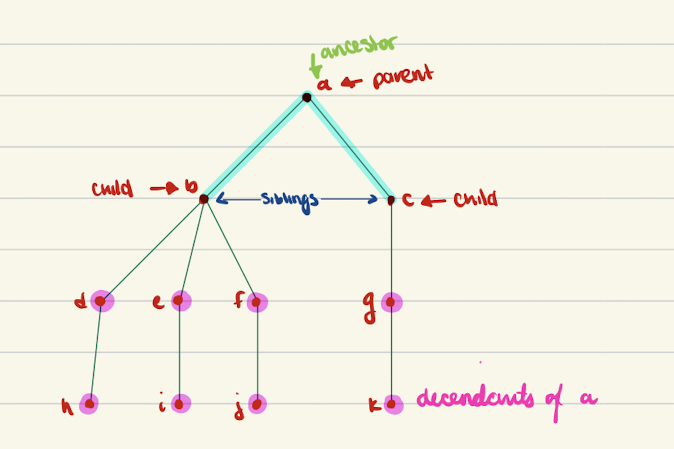 ancestor
a ← parent
child → b ← siblings → c ← child
d e f g
h i j k decendants of a